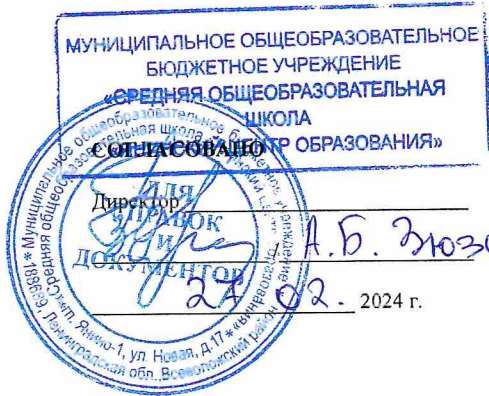 МУНИЦИПАЛЬНОЕ ОБЩЕОБРАЗОВАТЕЛЬНОЕ
БЮДЖЕТНОЕ УЧРЕЖДЕНИЕ
«СРЕДНЯЯ ОБЩЕОБРАЗОВАТЕЛЬНАЯ
ШКОЛА
ЦЕНТР ОБРАЗОВАНИЯ»
СОГЛАСОВАНО
Директор
А.Б.
27 02. 2024 г.
ДЛЯ
СПРАВОК
И
ДОКУМЕНТОВ
* Муниципальное общеобразовательное бюджетное учреждение
«Средняя общеобразовательная школа центр образования» *
188689, Ленинградская обл., Всеволожский район
Янино-1, ул. Новая, д.17